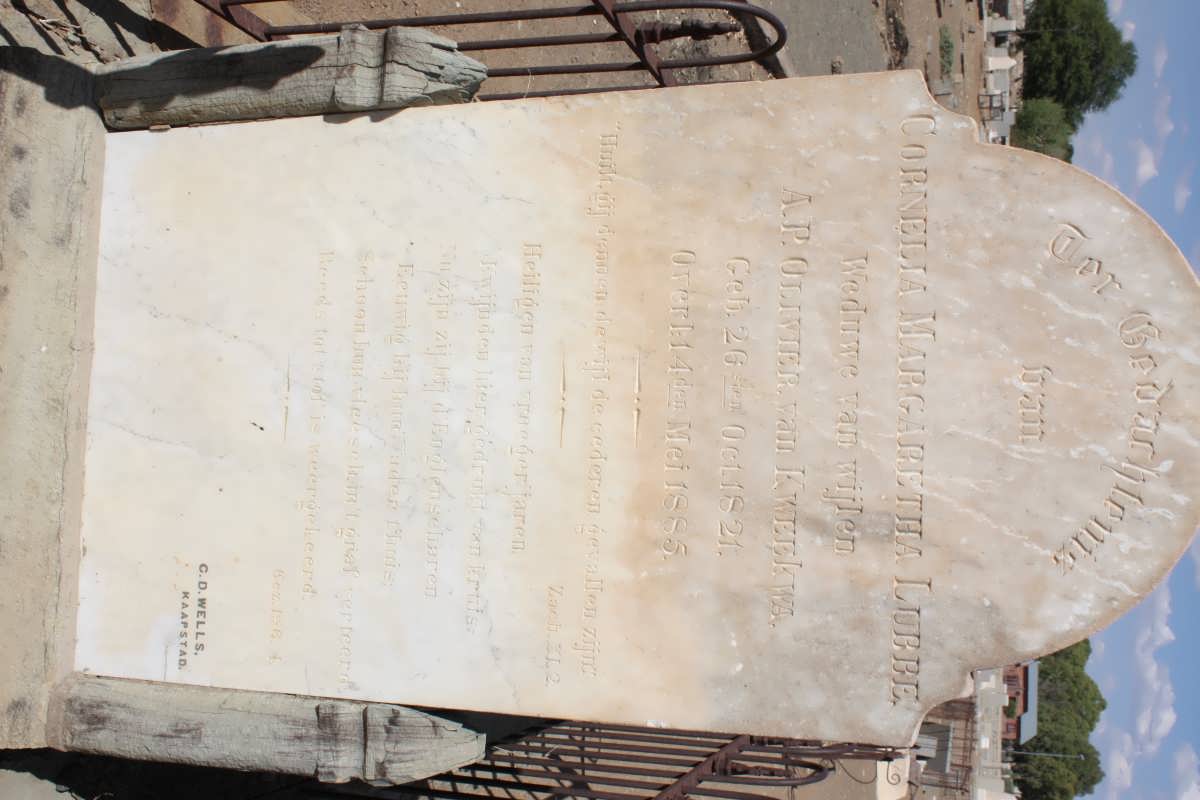 Ter Gedachtenis
van
CORNELIA MARGARETHA LUBBE
Weduwe van wijlen
A.P. OLIVIER, van KWEEKWA.
Geb. 26sten Oct. 1821.
Overl. 14den Mei 1885.
"Huilt gij dennen dewijl de cederen gevallen zijn"
Zach. 11.2.
Heiligen van vroeger jaren
hier gedrukt van kruis,
Nu zijn zij bij d'Englenscharen
Eeuwig bij hun Vader thuis,
Schoon hun vleesch in't graf verteerd,
Reeds tot stof is weergekeerd.
Gez.
C.D. WELLS.
KAAPSTAD.